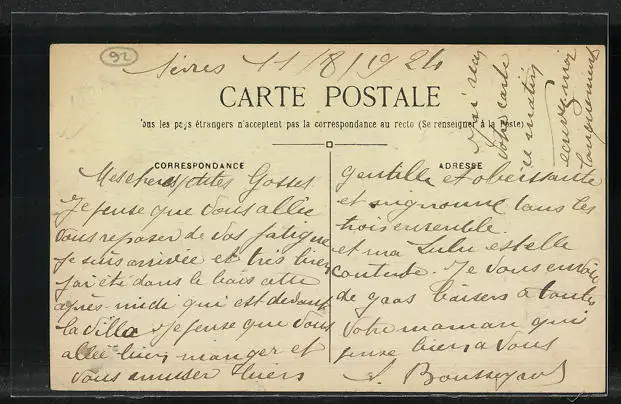 92
Sèvres 11/8/1924
CARTE POSTALE
Tous les pays étrangers n'acceptent pas la correspondance au recto (Se renseigner à la Poste)
CORRESPONDANCE
Mes cheres petites Gosses
Je pense que vous allée
vous reposer de vos fatigue
je suis arrivée et très bien
j'ai été dans le bois cette
après-midi qui est devant
la villa. Je pense que vous
allée bien manger et
vous amuser biens
ADRESSE
gentille et obeissante
et mignonne tous les
trois ensemble
et ma Lulu est elle
contente. Je vous envoie
de gros baisers a toutes
Votre maman qui
pense bien a vous
Boussegard
j'ai reçu
votre carte
ce matin
ecrivez moi
longuement